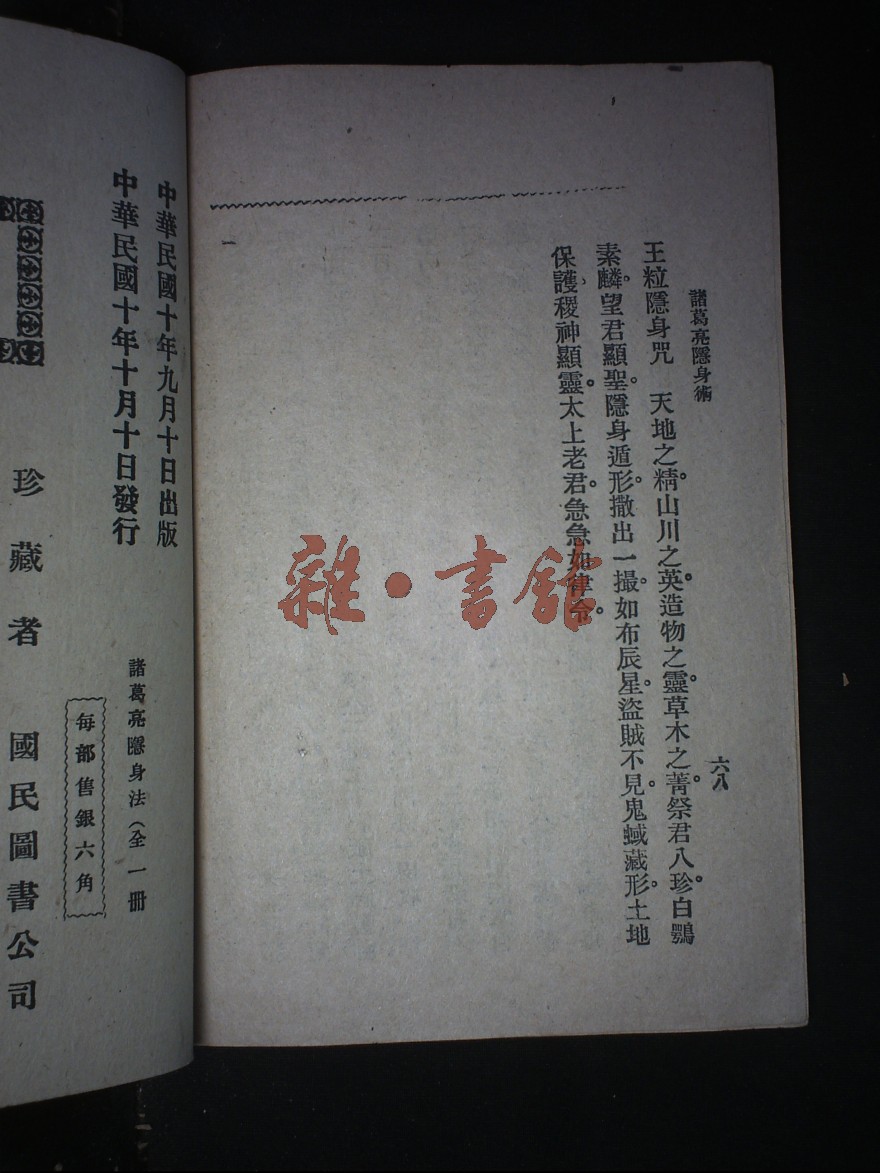 諸葛亮隱身術
六八
王粒隱身咒　天地之精。山川之英。造物之靈。草木之菁。祭君八珍。白鶚
素麟。望君顯聖。隱身遁形。撒出一撮。如布辰星。盜賊不見。鬼蜮藏形。土地
保護。稷神顯靈。太上老君。急急如律令。
雜·書舘
中華民國十年九月十日出版
中華民國十年十月十日發行
諸葛亮隱身法（全一冊
每部售銀六角
珍藏者　國民圖書公司